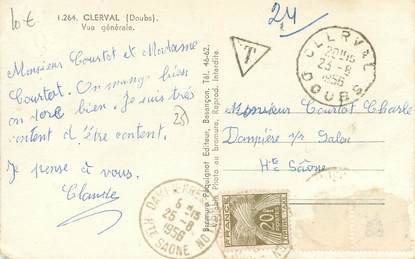 10€
1.264. CLERVAL (Doubs).
Vue générale.
24
T
CLERVAL
20H15
23-8
1956
DOUBS
Monsieur Courtot et Madame
Courtot. On mange bien
on dort bien. Je suis très
content d'être content.
Je pense à vous.
Claude
Péquignot Editeur, Besançon. Tél. 46-62.
Photo au bromure. Reprod. Interdite.
Monsieur Courtot Charle
Dampière s/r Salon
Hte Saône
6 H15
25-8
1956
HTE SAONE
FRANCE
20F